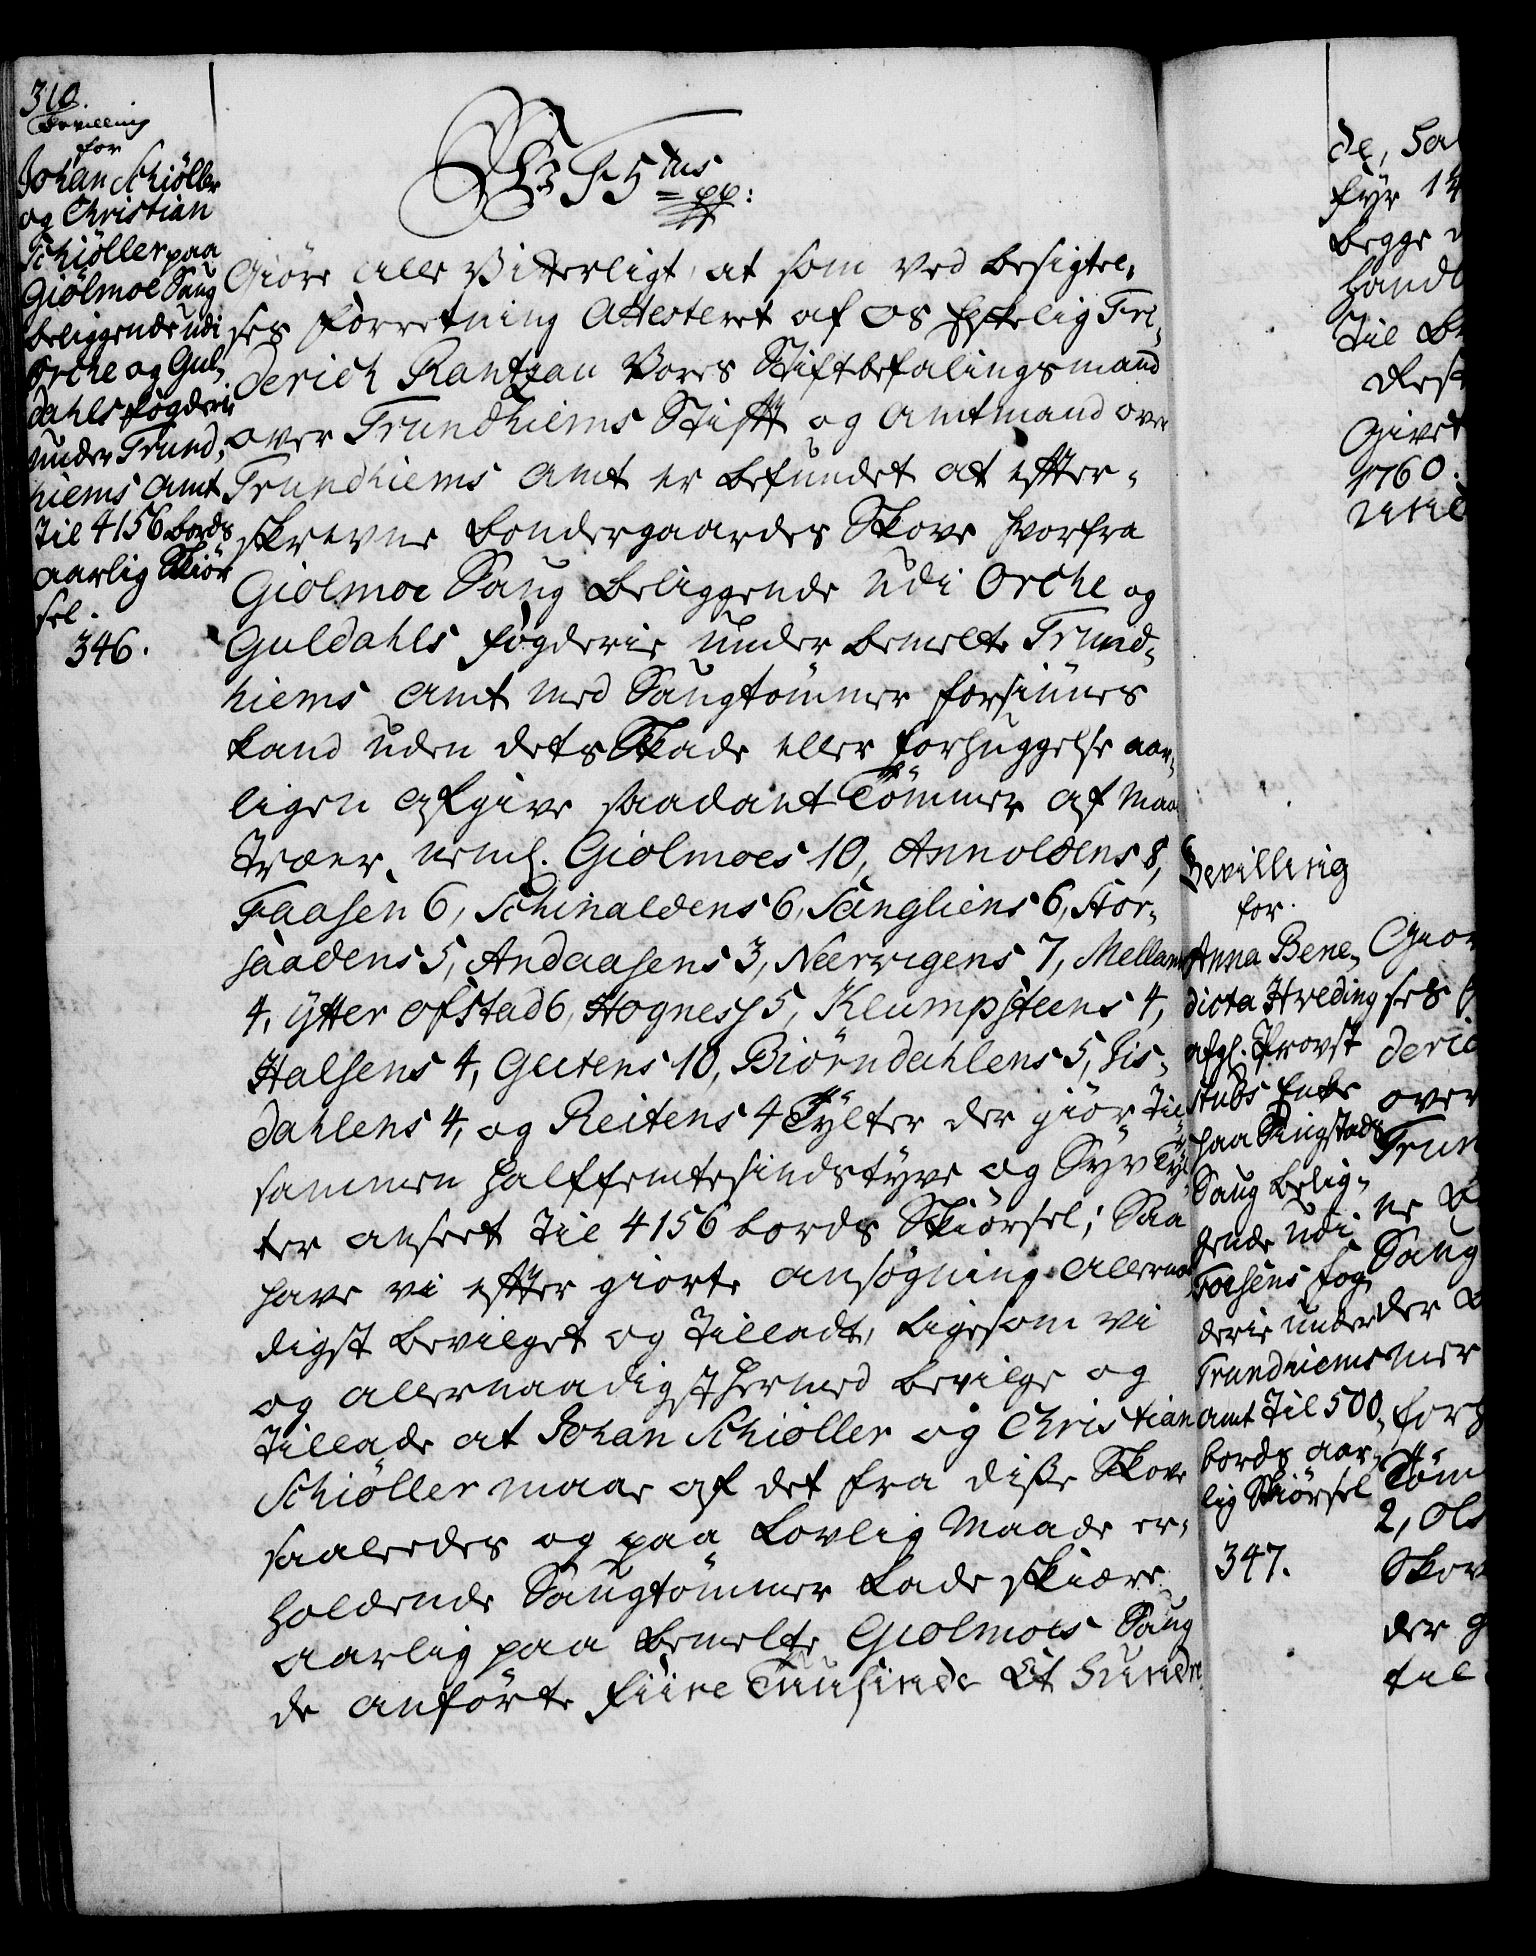 310.
Bevilling
for
Johan Schiöller
og Christian
Schiöller paa
Giölmoe Saug
beliggende udi
Orche og Gul-
dahls fogderie
under Trund-
hiems Amt
til 4156 bords
aarlig Skiör
sel.
346.
Wii F 5tus
pp:
Giöre alle Vitterligt, at som ved besigtel-
ses forretning Attesteret af Os Elskelig Fri-
derich Rantzau Vores Stiftbefalingsmand
over Trundhiems Stifft og Amtmand over
Trundhiems Amt er befundet at effter-
skrevne bondergaardes Skove hvorfra
Giolmoe Saug beliggende udi Orche og
Guldahls fogderie under bemelte Trund-
hiems Amt med Saugtömmer forsiunes
kand uden dets Skade eller forhuggelse aar-
ligen afgive saadant Tömmer af Maa
træer, neml. Giolmoes 10, Annoldens 8,
Faasen 6, Schinaldens 6, Sangliens 6, Stor-
saadens 5, Andaasens 3, Neervigens 7, Mellam
4, ytter ofstad 6, Hogness 5, Klumpsteens 4,
Halsens 4, Geitens 10, Biörndahlens 5, Sis-
dahlens 4, og Reitens 4 Tylter der giör til-
sammen halffemtesindstyve og Syv Tyl
ter anseet til 4156 bords Skiörsel; Saa
have vi effter giorte ansögning allernaa
digst bevilget og tilladt, ligesom vi
og allernaadigst hermed bevilge og
tillade at Johan Schiöller og Christian
Schiöller maae af det fra disse Skove
saaledes og paa Lovlig Maade er-
holdende Saugtömmer lade skiære
aarlig paa bemelte Giolmoes Saug
de anförte fiire Tuusinde Et hundre
de, Sa
fyr 14
begge
handl
til Br
Rest
Givet
1760.
Bevilling
for.
Anna Bene-
dicta Hveding
afgl. Provst
Stubs Enke
paa Singstads
Saug belig-
gende udi
Foesens fog
derie under
Trundhiems
Amt til 500
bords aar-
lig Skiörsel
347.
Giör
ses f
deric
over
Trun
ne B
Saug
der B
mer
forh
Töm
2, Ols
Skov
der g
til